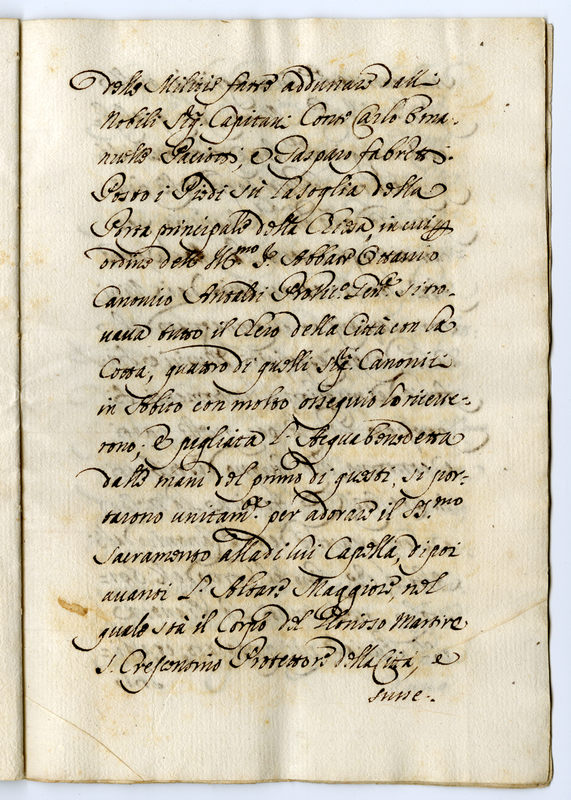 delle Milizie fatte addunare dalli
Nobili Sig.ri Capitani Conte Carlo Ema=
nuelle Paciotti, e Gasparo Fabretti.
Posto i Piedi sù la soglia della
Porta principale della Chiesa, in cui per
ordine dell' Ill.mo Sr. Abbate Ottavio
Canonico Antaldi Provic.o Gen.le si tro=
vava tutto il Clero della Città con la
Cotta, quattro di quelli Sig.ri Canonici
in Abito con molto ossequio lo riceve=
rono; e pigliata l'Acqua benedetta
dalle mani del primo di questi, si por=
tarono unitam.te per adorare il SS.mo
Sacramento alla di lui Capella, di poi
avanti l'Altare Maggiore, nel
quale stà il Corpo del Glorioso Martire
S. Crescentino Protettore della Città, e